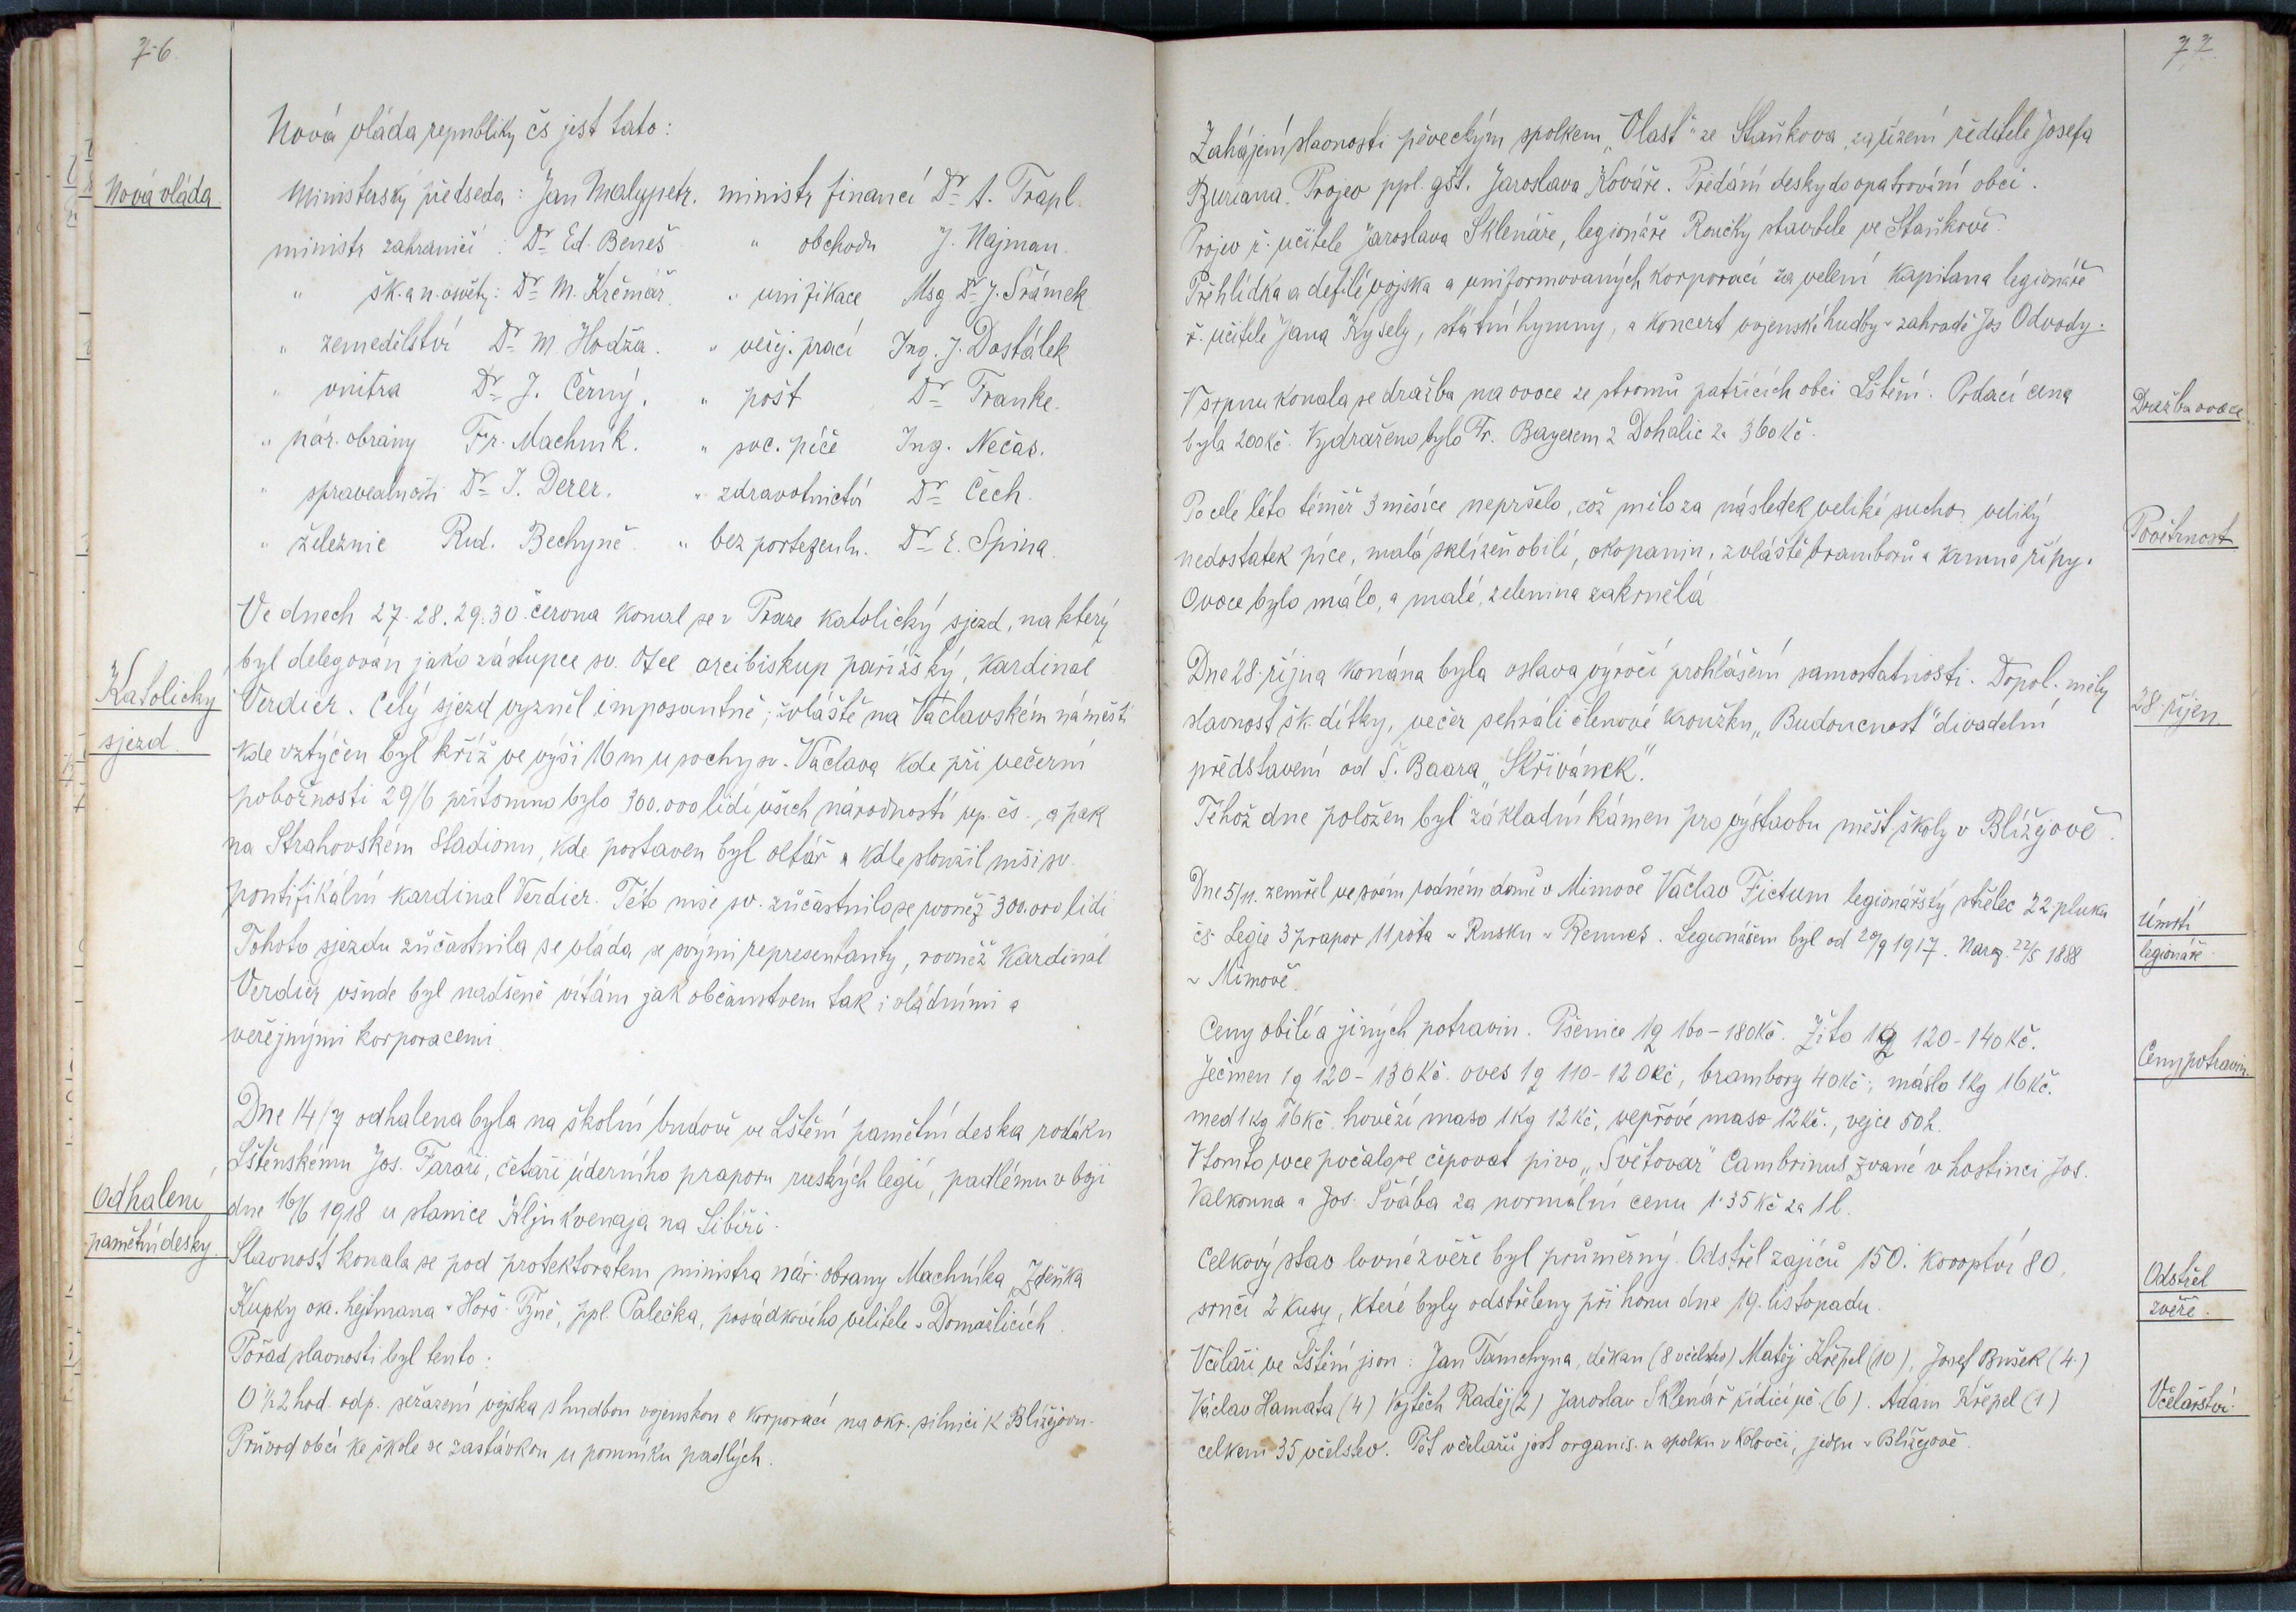 76.
Nová vláda republiky čs jest tato:
Nová vláda
Ministerský předseda: Jan Malypetr. ministr financí Dr A. Trapl.
ministr zahraničí: Dr Ed. Beneš " obchodu J. Najman.
" šk. a n. osvěty: Dr M. Krčmář. " unifikace Msg Dr J. Šrámek
" zemedělství Dr M. Hodža. " veřj. prací Ing. J. Dostálek
" vnitra Dr J. Černý. " pošt Dr Franke.
" nár. obrany Fr. Machník. " soc. péče Ing. Nečas.
" spravedlnosti Dr I. Derer. " zdravotnictví Dr Čech.
" železnic Rud. Bechyně. " bez portefeulu. Dr E. Spina.
Ve dnech 27. 28. 29. 30. června konal se v Praze katolický sjezd, na který
byl delegován jako zástupce sv. Otce arcibiskup pařížský, kardinal
Katolický
sjezd.
Verdier. Celý sjezd vyzněl imposantně, zvláště na Václavském náměstí
kde vztyčen byl kříž ve výši 16 m u sochy sv. Václava kde při večerní
pobožnosti 29/6 přítomno bylo 300.000 lidí všech národností rep. čs., a pak
na Strahovském Stadionu, kde postaven byl oltář a kde sloužil mši sv.
pontifikální kardinal Verdier. Této mše sv. zúčastnilo se rovněž 300.000 lidí
Tohoto sjezdu zúčastnila se vláda se svými representanty, rovněž Kardinál
Verdier všude byl nadšeně vítám jak občanstvem tak i vládními a
veřejnými korporacemi
Dne 14/7 odhalena byla na školní budově ve Lštění pamětní deska rodáku
Lštěnskému Jos. Faraři, četaři úderního praporu ruských legií, padlému v boji
Odhalení
pamětní desky.
dne 16/6 1918 u stanice Kljukvenaja na Sibiři.
Slavnost konala se pod protektorátem ministra nár. obrany Machníka, Zdeňka
Kupky okr. hejtmana v Horš. Týně, ppl. Palečka, posádkového velitele v Domažlicích.
Pořad slavnosti byl tento:
O ½2 hod. odp. seřazení vojska s hudbou vojenskou a korporací na okr. silnici k Blížejovu.
Průvod obcí ke škole se zastávkou u pomníku padlých.
77
Zahájení slavnosti pěveckým spolkem "Vlast" ze Staňkova, za řízení ředitele Josefa
Buriana. Projev ppl. gšt. Jaroslava Kováře. Předání desky do opatrování obci.
Projev ř. učitele Jaroslava Sklenáře, legionáře Roučky stavitele ve Staňkově.
Přehlídka a defilé vojska a uniformovaných korporací za velení kapitana legionáře
ř. učitele Jana Kysely, státní hymny, a koncert vojenské hudby v zahradě Jos Odvody.
V srpnu konala se dražba na ovoce ze stromů patřících obci Lštění. Podací cena
Dražba ovoce
byla 200 Kč. Vydraženo bylo Fr. Bayerem z Dohalic za 360 Kč.
Po celé léto téměř 3 měsíce nepršelo, což mělo za následek veliké sucho, veliký
Povětrnost
nedostatek píce, malá sklízeň obilí, okopanin, zvláště bramborů a krmné řípy.
Ovoce bylo málo, a malé, zelenina zakrnělá
Dne 28. října konána byla oslava výročí prohlášení samostatnosti. Dopol. měly
28. říjen
slavnost šk. dítky, večer sehráli členové kroužku "Budoucnost" divadelní
představení od Š. Baara "Skřivánek".
Téhož dne položen byl základní kámen pro výstavbu měšt. školy v Blížejově.
Dne 5/11. zemřel ve svém rodném domě v Mimově Václav Fictum legionářský střelec 22 pluku
Úmrtí
legionáře.
čs. Legie 3 prapor 11 rota v Rusku v Rennes. Legionářem byl od 20/9 1917. Naroz. 22/5 1888
v Mimově.
Ceny obilí a jiných potravin. Pšenice 1q 160-180 Kč. Žito 1q 120-140 Kč.
Ceny potravin.
Ječmen 1q 120-130 Kč. oves 1q 110-120 Kč, brambory 40 Kč, máslo 1kg 16 Kč.
med 1kg 16 Kč. hovězí maso 1kg 12 Kč, vepřové maso 12 Kč., vejce 50 h.
V tomto roce počalo se čepovat pivo "Světovar" Cambrinus zvané v hostinci Jos.
Valkouna a Jos. Švába za normální cenu 1.35 Kč za 1 l.
Celkový stav lovné zvěře byl průměrný. Odstřel zajíců 150. koroptví 80,
Odstřel
zvěře.
srnčí 2 kusy, které byly odstřeleny při honu dne 19. listopadu.
Včelaři ve Lštění jsou: Jan Tamchyna, děkan (8 včelstev) Matěj Křepel (10), Josef Bušek (4.)
Včelařství.
Václav Hamata (4) Vojtěch Raděj (2) Jaroslav Sklenář řídící uč (6). Adam Křepel (1)
celkem 35 včelstev. Pět včelařů jest organis. u spolku v Kolovči, jeden v Blížejově.